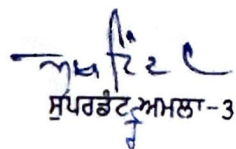 ਸੁਪਰਡੰਟ ਅਮਲਾ-3